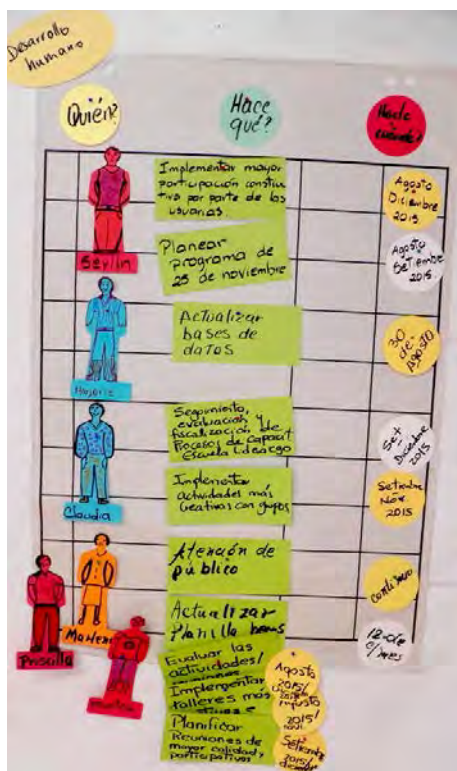 Desarrollo
humano
Quién?
Hace
qué?
Hasta
cuándo?
Implementar mayor
participación constuc
tiva por parte de las
usuarias
Agosto
Diciembre
2015
Sevlin
Planear
programa de
25 de noviembre
Agosto
Setiembre
2015
Actualizar
bases de
datos
30
de
Agosto
Seguimiento,
evaluación y
fiscalización de
Procesos de capacit
Escuela Liderazgo
Set
Diciembre
2015
Claudia
Implementar
actividades más
creativas con grupos
Setiembre
Nov.
2015
Atención de
público
continuo
Priscilla
Actualizar
Planilla
12 de
c/mes
Evaluar las
actividades/
Agosto
2015/
Implementar
talleres más
2015/
Planificar
Reuniones de
mayor calidad y
participativas
Setiembre
2015/